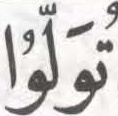 تُوَلُّوا